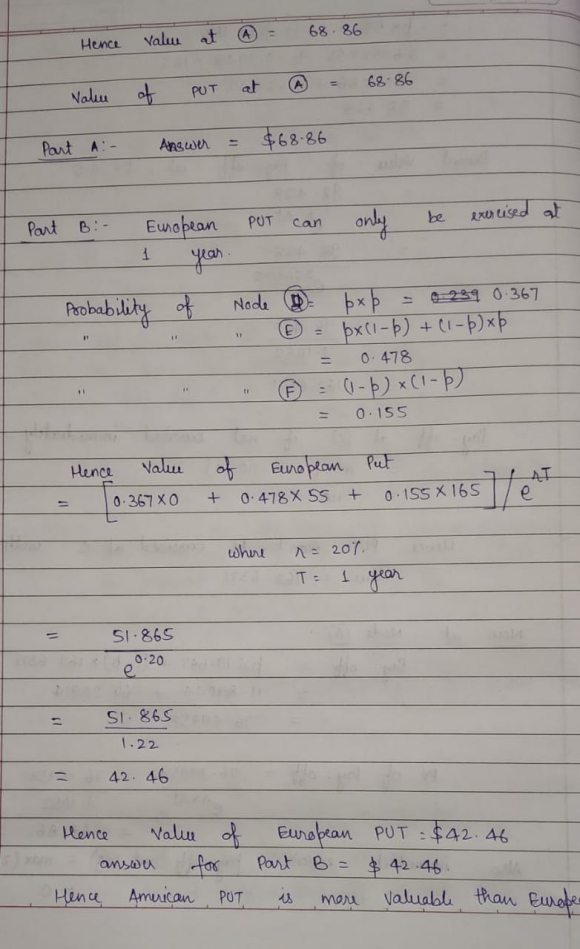 Hence Value at Ⓐ = 68.86
Value of PUT at Ⓐ = 68.86
Part A:- Answer = $68.86
Part B:- European PUT can only be exercised at
1 year.
Probability of Node Ⓓ = p×p = 0.239 0.367
" " " Ⓔ = p×(1-p) + (1-p)×p
= 0.478
" " " Ⓕ = (1-p) × (1-p)
= 0.155
Hence Value of European Put
= [0.367×0 + 0.478×55 + 0.155×165] / e^rT
where r = 20%.
T = 1 year
= 51.865
e^0.20
= 51.865
1.22
= 42.46
Hence Value of European PUT = $42.46
answer for Part B = $42.46.
Hence American PUT is more valuable than Europe